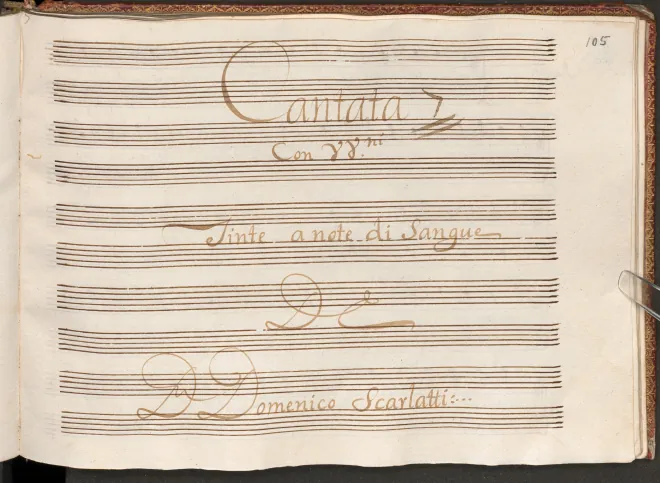 105
Cantata 7
Con VV.ni
Tinte a note di Sangue
Del
Dn Domenico Scarlatti:...